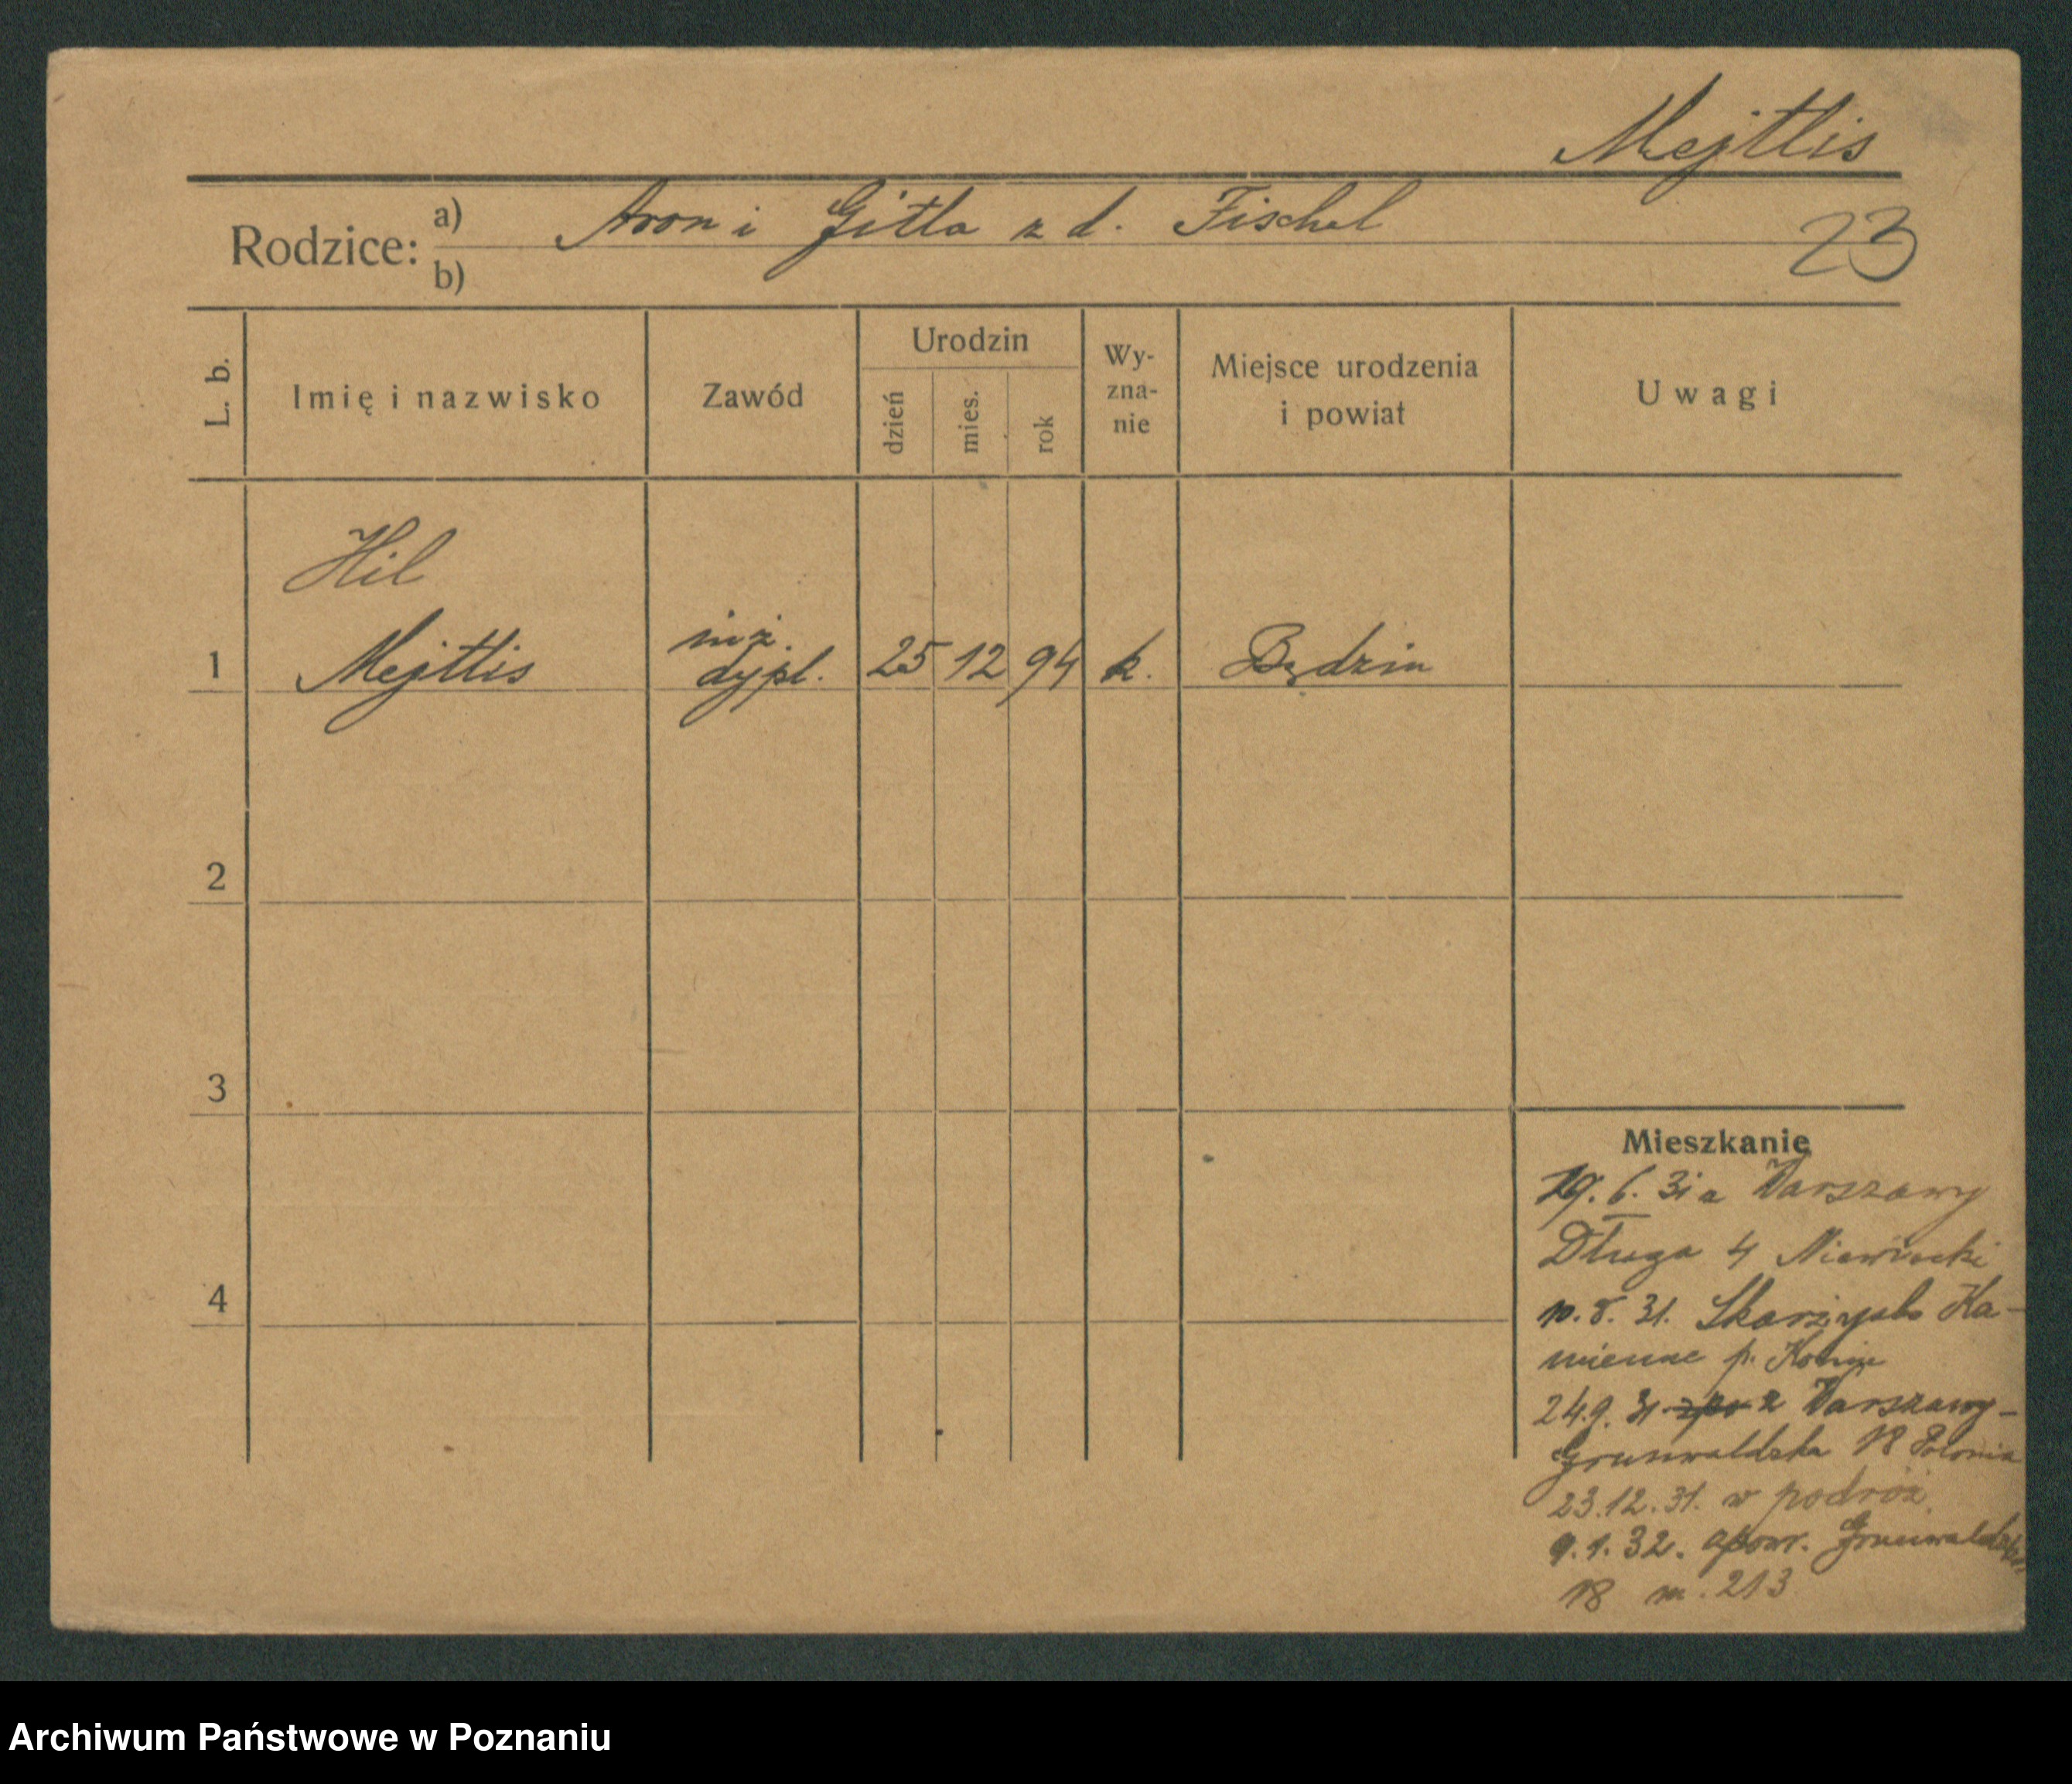 Mejtlis
Rodzice: a) Aron i Gitla z d. Fischel
b)
23
L. b.
Imię i nazwisko
Zawód
Urodzin
dzień
mies.
rok
Wy-
zna-
nie
Miejsce urodzenia
i powiat
Uwagi
Hil
inż.
1 Mejtlis dypl. 25 12 94 k. Będzin
2
3
4
Mieszkanie
19. 6. 31 z Warszawy
Długa 4
10. 8. 31. Skarżysko Ka-
mienne p.
24.9. 31 z Warszawy-
Grunwaldzka 18 Polonia
23.12.31. w podróż
9.1.32. Grunwaldzka
18 m. 213
Archiwum Państwowe w Poznaniu